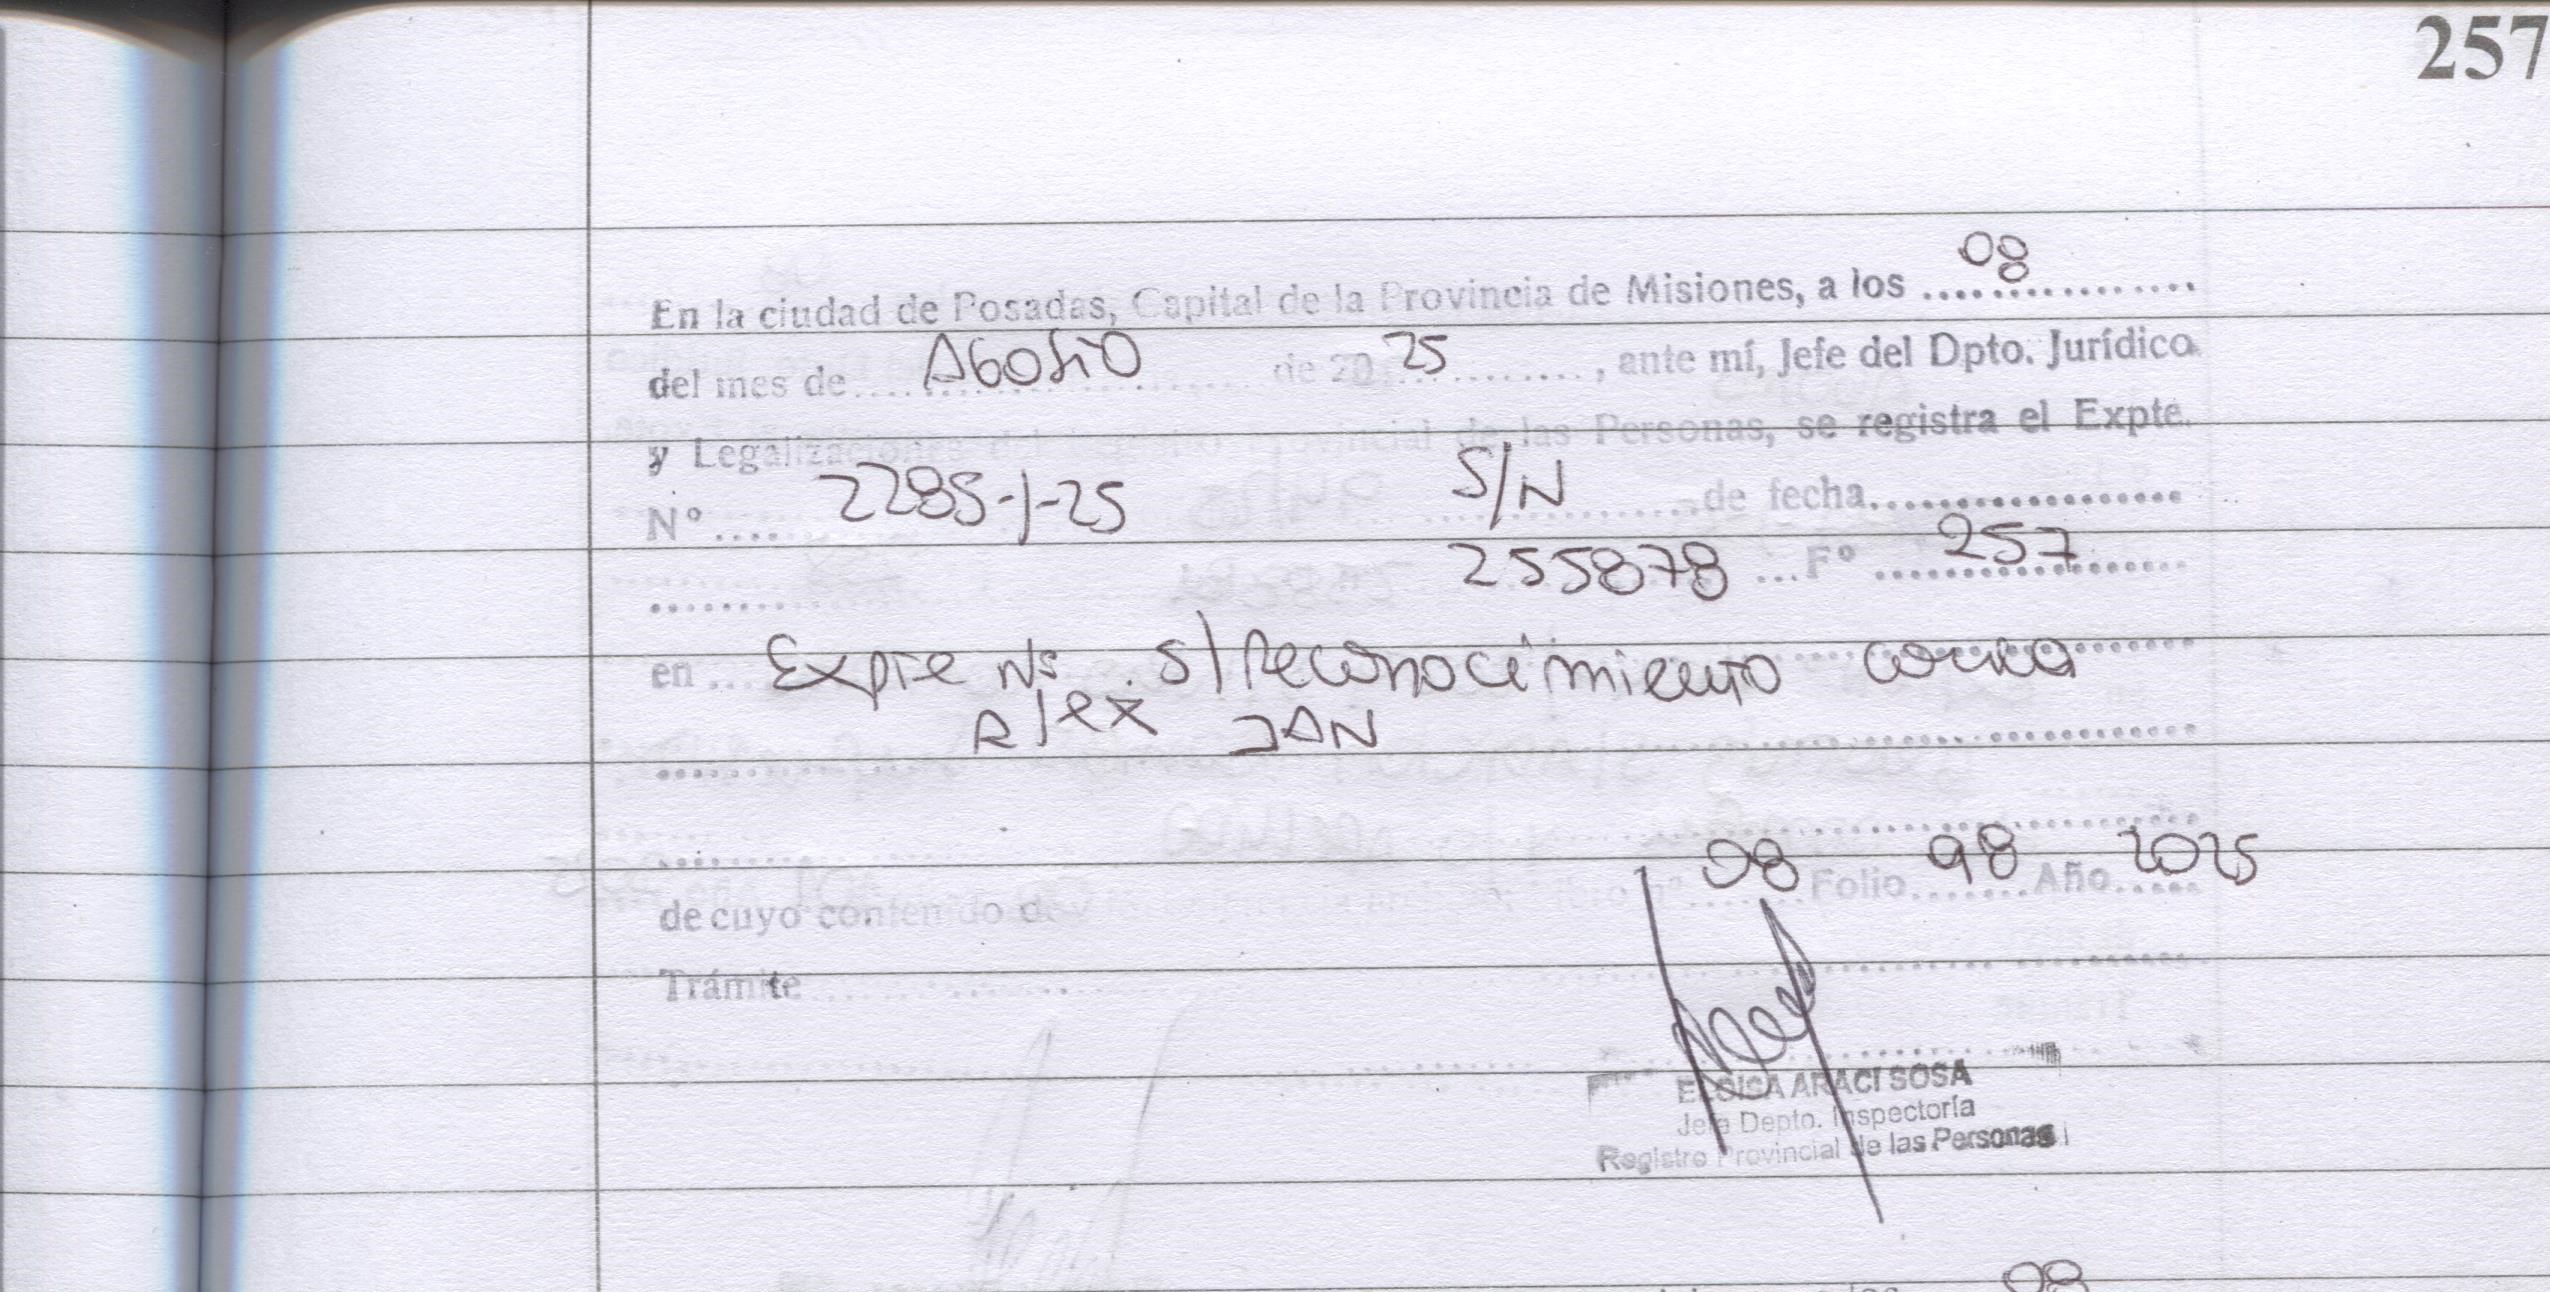 257
En la ciudad de Posadas, Capital de la Provincia de Misiones, a los 08
del mes de Agosto de 2025, ante mí, Jefe del Dpto. Jurídico
y Legalizaciones del Registro Provincial de las Personas, se registra el Expte.
Nº 2285-J-25 S/N de fecha
255878 Fº 257
en Expte Nº S/Reconocimiento
Alex JAN
08 Folio 98 Año 2025
de cuyo contenido
Trámite
ELOISA ARACI SOSA
Jefa Depto. Inspectoría
Registro Provincial de las Personas
08